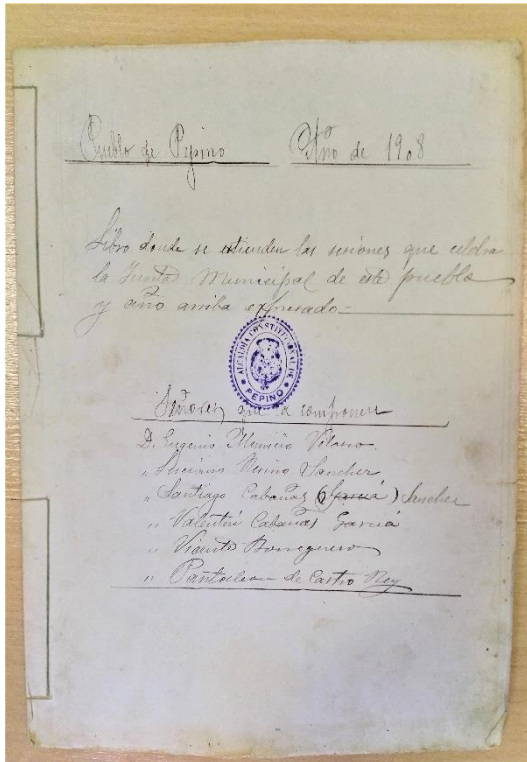 Pueblo de Pepino Año de 1908
Libro donde se estienden las sesiones que celebra
la Junta Municipal de este pueblo
y año arriba expresado.=
ALCALDÍA CONSTITUCIONAL DE
PEPINO
Señores que la componen
D. Eugenio Municio Velasco.
„ Luciano Sanchez
„ Santiago Cabañas (Garcia) Sanchez
„ Valentin Cabañas Garcia
„ Vicente Borreguero
„ Pantaleon de Castro Rey